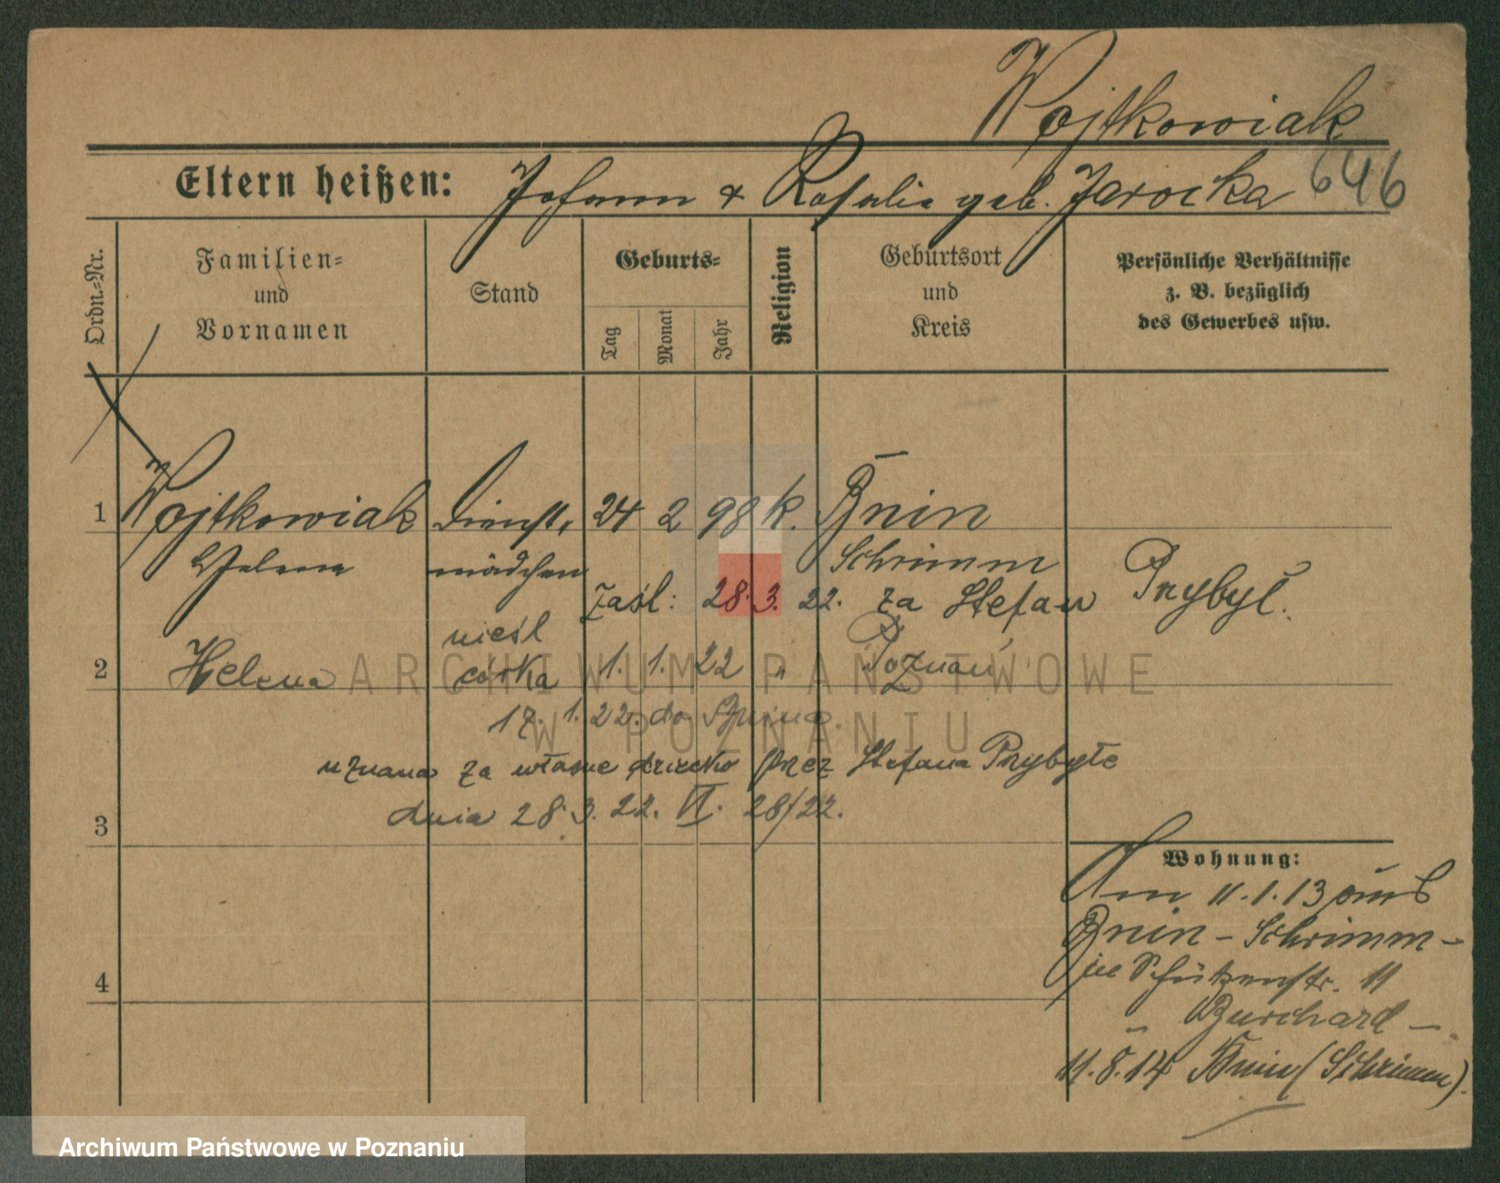 Wojtkowiak
Eltern heißen: Johann & Rosalie geb. Jarocka 646
Ordn.-Nr.
Familien-
und
Vornamen
Stand
Geburts-
Tag
Monat
Jahr
Religion
Geburtsort
und
Kreis
Persönliche Verhältnisse
z. B. bezüglich
des Gewerbes usw.
1 Wojtkowiak Dienst- 24 2 98 k. Bnin
Helene mädchen Schrimm
zaśl: 28.3.22. za Stefan Przybył.
nieśl
2 Helena córka 1. 1. 22 " Poznań
17. 1. 22. do Bnina.
uznana za własne dziecko przez Stefana Przybyłę
dnia 28.3.22. VI. 28/22.
3
Wohnung:
Am 11.1.13 aus
Bnin - Schrimm -
Schützenstr. 11
" Burchard -
4
11.8.14 Bnin (Schrimm)
ARCHIWUM PAŃSTWOWE
W POZNANIU
Archiwum Państwowe w Poznaniu